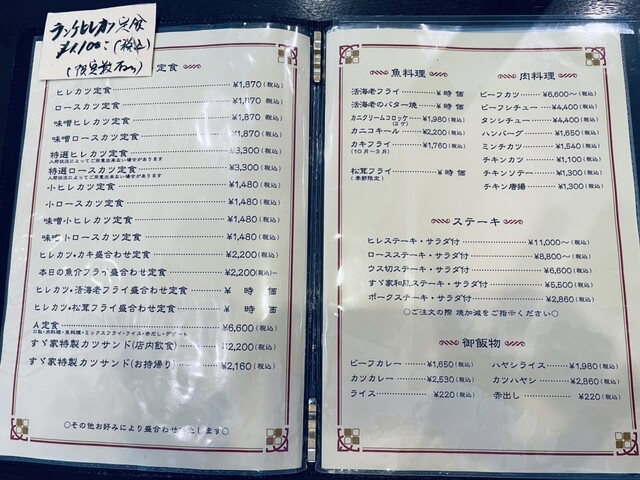 ランチヒレカツ定食
¥1,100-(税込)
(限定数
定食
ヒレカツ定食 ¥1,870(税込)
ロースカツ定食 ¥1,870(税込)
味噌ヒレカツ定食 ¥1,870(税込)
味噌ロースカツ定食 ¥1,870(税込)
特選ヒレカツ定食 ¥3,300(税込)
入荷状況によってご用意出来ない場合があります
特選ロースカツ定食 ¥3,300(税込)
入荷状況によってご用意出来ない場合があります
小ヒレカツ定食 ¥1,480(税込)
小ロースカツ定食 ¥1,480(税込)
味噌小ヒレカツ定食 ¥1,480(税込)
味噌小ロースカツ定食 ¥1,480(税込)
ヒレカツ・カキ盛合わせ定食 ¥2,200(税込)
本日の魚介フライ盛合わせ定食 ¥2,200(税込)~
ヒレカツ・活海老フライ盛合わせ定食 ¥ 時 価
ヒレカツ・松茸フライ盛合わせ定食 ¥ 時 価
A定食 ¥6,600(税込)
口取・肉料理・魚料理・ミックスフライ・ライス・赤だし・デザート
すゞ家特製カツサンド(店内飲食) ¥2,200(税込)
すゞ家特製カツサンド(お持帰り) ¥2,160(税込)
○その他お好みにより盛合わせいたします○
魚料理
活海老フライ ¥ 時 価
活海老のバター焼 ¥ 時 価
カニクリームコロッケ ¥1,980(税込)
(2ケ)
カニコキール ¥2,200(税込)
カキフライ ¥1,760(税込)
(10月~3月)
松茸フライ ¥ 時 価
(季節限定)
肉料理
ビーフカツ ¥6,600~(税込)
ビーフシチュー ¥4,400(税込)
タンシチュー ¥4,400(税込)
ハンバーグ ¥1,650(税込)
ミンチカツ ¥1,540(税込)
チキンカツ ¥1,100(税込)
チキンソテー ¥1,300(税込)
チキン唐揚 ¥1,300(税込)
ステーキ
ヒレステーキ・サラダ付 ¥11,000~(税込)
ロースステーキ・サラダ付 ¥8,800~(税込)
ウス切ステーキ・サラダ付 ¥6,600(税込)
すゞ家和風ステーキ・サラダ付 ¥5,500(税込)
ポークステーキ・サラダ付 ¥2,860(税込)
○ご注文の際 焼加減をご指示ください○
御飯物
ビーフカレー ¥1,650(税込)
カツカレー ¥2,530(税込)
ライス ¥220(税込)
ハヤシライス ¥1,980(税込)
カツハヤシ ¥2,860(税込)
赤出し ¥220(税込)